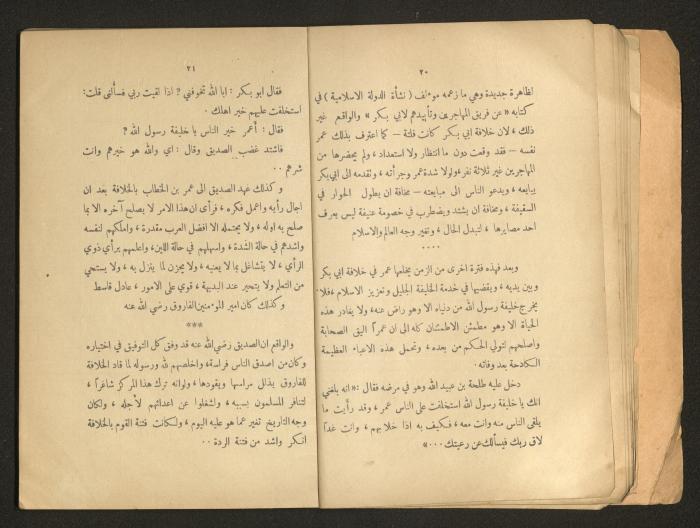 ٢٠
لظاهرة جديدة وهي ما زعمه مؤلف ( نشأة الدولة الاسلامية ) في
كتابه « عن فريق المهاجرين وتأييدهم لابي بكر » والواقع غير
ذلك ، لان خلافة ابي بكر كانت فلتة – كما اعترف بذلك عمر
نفسه – فقد وقعت دون ما انتظار ولا استعداد ، ولم يحضرها من
المهاجرين غير ثلاثة نفر، ولولا شدة عمر وجرأته ، وتقدمه الى ابي بكر
يبايعه ، ويدعو الناس الى مبايعته – مخافة ان يطول الحوار في
السقيفة ، ومخافة ان يشتد ويضطرب في خصومة عنيفة ليس يعرف
احد مصايرها ، لتبدل الحال ، وتغير وجه العالم والاسلام
٠٠٠٠
وبعد فهذه فترة اخرى من الزمن يخلعها عمر في خلافة ابي بكر
وبين يديه ، ويقضيها في خدمة الخليفة الجليل وتعزيز الاسلام ، فلا
يخرج خليفة رسول الله من دنياه الا وهو راض عنه، ولا يغادر هذه
الحياة الا وهو مطمئن الاطمئنان كله الى ان عمراً اليق الصحابة
واصلحهم لتولي الحكم من بعده ، وتحمل هذه الاعباء العظيمة
الكادحة بعد وفاته .
دخل عليه طلحة بن عبيد الله وهو في مرضه فقال : « انه بلغني
انك يا خليفة رسول الله استخلفت على الناس عمر ، وقد رأيت ما
يلقى الناس منه وانت معه ، فكيف به اذا خلا بهم ، وانت غداً
لاق ربك فيسألك عن رعيتك ٠٠٠ »
٢١
فقال ابو بكر : ابا الله تخوفني ? اذا لقيت ربي فسألني قلت:
استخلفت عليهم خير اهلك .
فقال : أعمر خير الناس يا خليفة رسول الله ?
فاشتد غضب الصديق وقال : اي والله هو خيرهم وانت
شرهم ٠٠
وكذلك عهد الصديق الى عمر بن الخطاب بالخلافة بعد ان
اجال رأيه واعمل فكره ، فرأى ان هذا الامر لا يصلح آخره الا بما
صلح به اوله ، ولا يحتمله الا افضل العرب مقدرة ، واملكهم لنفسه
واشدهم في حالة الشدة ، واسهلهم في حالة اللين، واعلمهم برأي ذوي
الرأي ، لا يتشاغل بما لا يعنيه ، ولا يحزن لما ينزل به ، ولا يستحي
من التعلم ولا يتحير عند البديهة ، قوي على الامور ، عادل قاسط
وكذلك كان امير المؤمنين الفاروق رضي الله عنه
***
والواقع ان الصديق رضي الله عنه قد وفق كل التوفيق في اختياره
وكان من اصدق الناس فراسة، واخلصهم لله ورسوله لما قاد الخلافة
للفاروق يذلل مراسها ويقودها ، ولو انه ترك هذا المركز شاغراً ،
لتنافر المسلمون بسببه ، ولشغلوا عن اعدائهم لأجله ، ولكان
وجه التاريخ تغير عما هو عليه اليوم ، ولكانت فتنة القوم بالخلافة
انكر واشد من فتنة الردة ٠٠